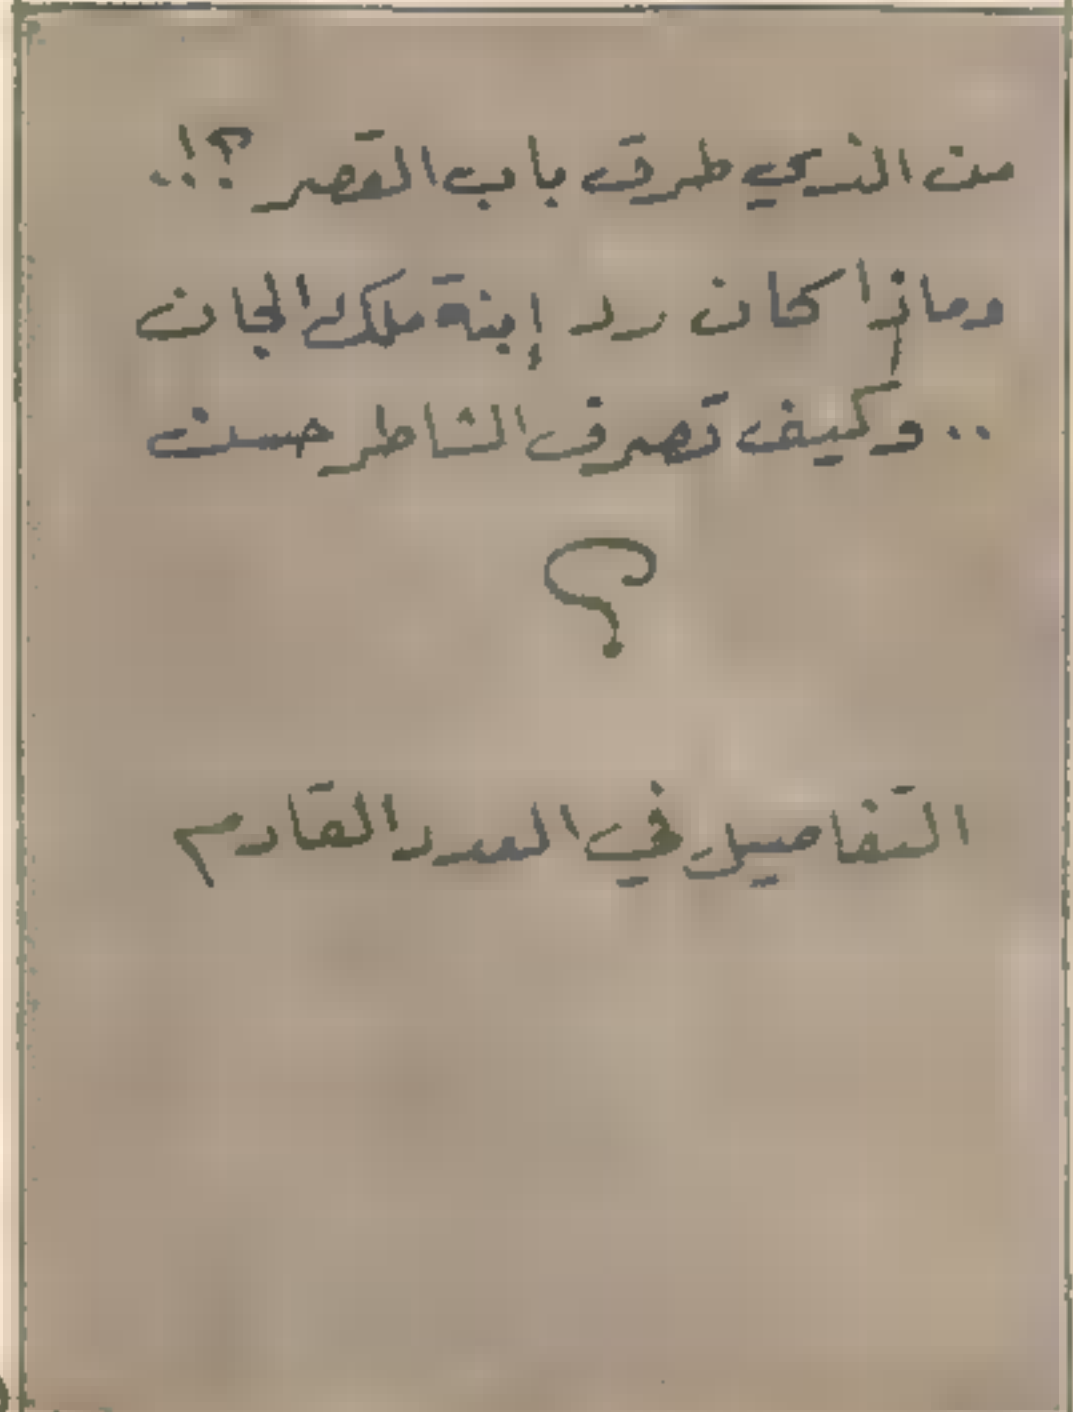 من الذي طرق باب القصر ؟!..
وماذا كان رد إبنة ملك الجان
.. وكيف تصرف الشاطر حسن
؟
التفاصيل في العدد القادم